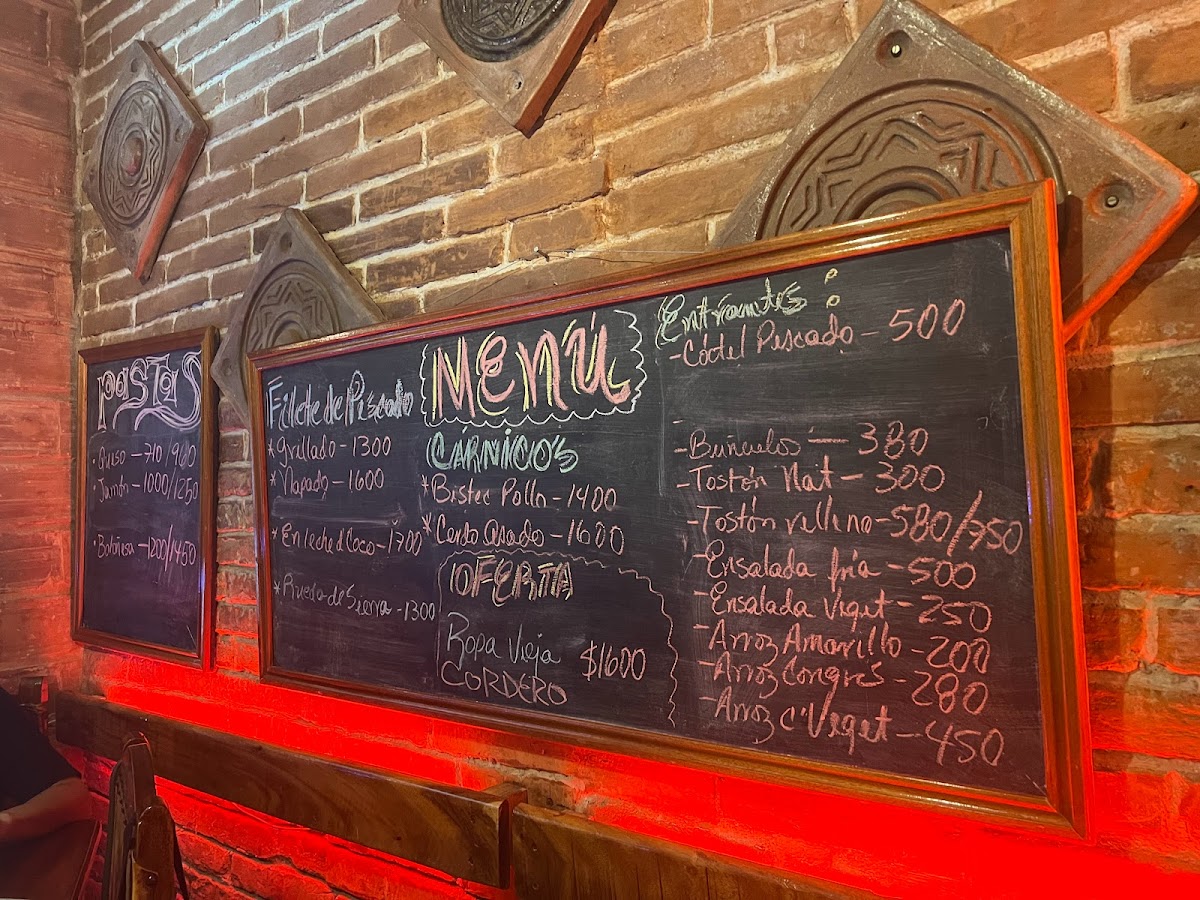 Pastas
Queso - 710/960
* Jamón - 1000/1250
* Boloñesa - 1200/1450
Fillete de Piscado
* Grillado - 1300
* Napado - 1600
* En leche d Coco - 1700
* Rueda de Sierra - 1300
Menú
CÁRNICO'S
* Bistec Pollo - 1400
* Cerdo Asado - 1600
OFERTA
Ropa Vieja
CORDERO
$1600
Entrantes :
- Cóctel Pescado - 500
-
- Buñuelos - 380
- Tostón Nat - 300
- Tostón relleno - 580/750
- Ensalada fria - 500
- Ensalada Viget - 250
- Arroz Amarillo - 200
- Arroz Congris - 280
- Arroz c' Viget - 450